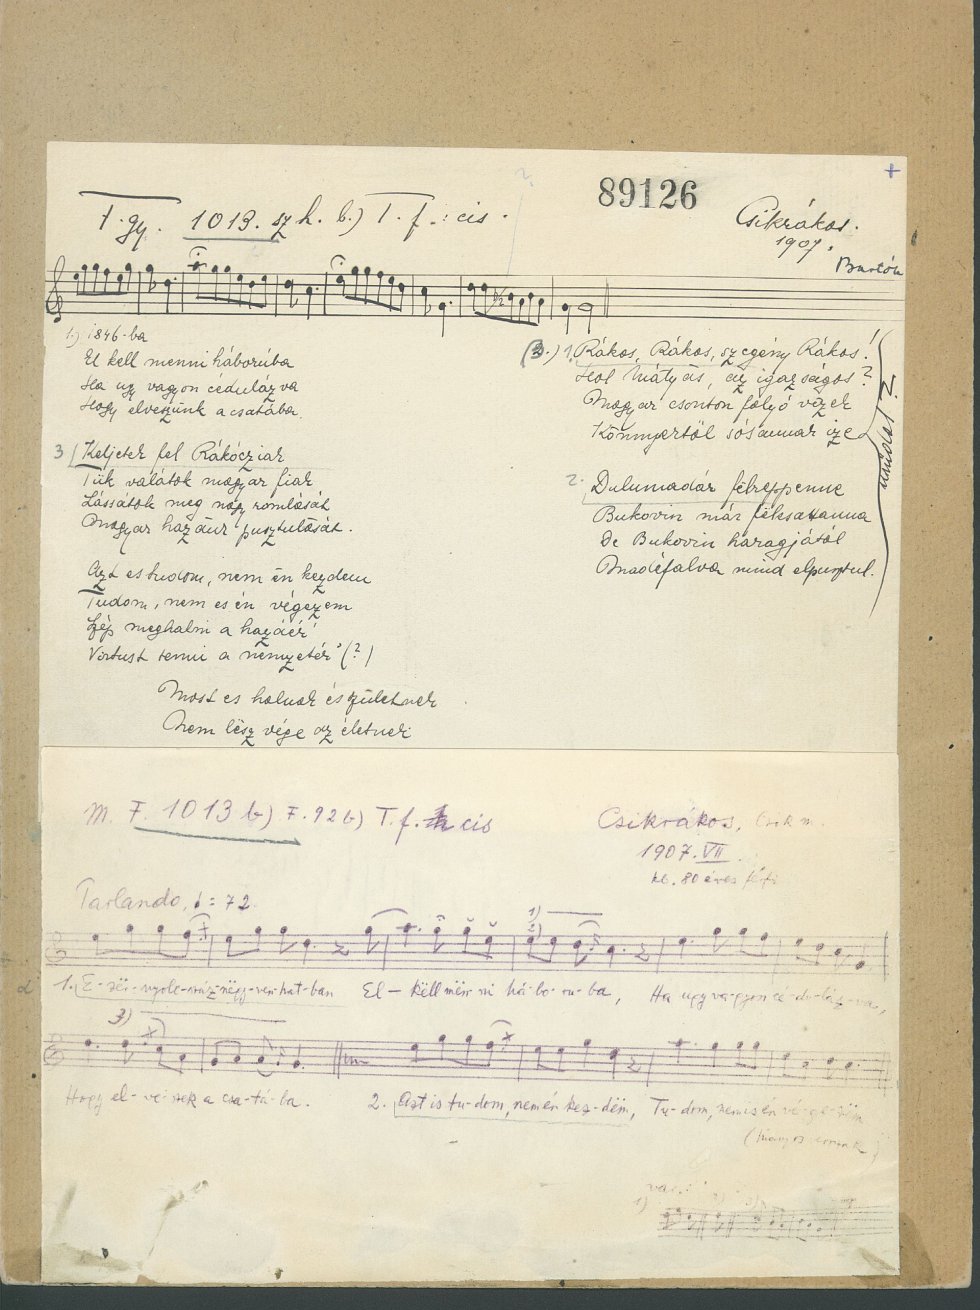 89126
T. gy. 1013. sz h. b.) T. f. : cis.
Csikrákos.
1907.
Bartók
1.) 1846-ba
El kell menni háborúba
Ha ugy vagyon cédulázva
Hogy elveszünk a csatába.
3 Keljetek fel Rákócziak
Tük valátok magyar fiak
Lássátok meg nagy romlását
Magyar hazánk pusztulását.
Azt es tudom, nem én kezdem
Tudom, nem es én végezem
Szép meghalni a hazáér'
Virtust tenni a nemzetér' (?)
Most es halnak és születnek
Nem lész vége az életnek
(3.) 1. Rákos, Rákos, szegény Rákos!
Hol Mátyás, az igazságos?
Magyar csonton folyó vizek
Könnyektől sós annak ize
2. Dulumadár felreppenne
Bukovin már felszaanna
De Bukovin haragjától
Madéfalva mind elpusztul.
M. F. 1013 b) F. 92 b) T. f. cis
Csikrákos, Csik m.
1907. VII.
kb. 80 éves férfi
Parlando, ♩ = 72
1)
1. E-zër-nyolc-száz-negy-ven-hat-ban El-këll mën-ni há-bo-ru-ba, Ha ugy va-gyon cé-du-láz-va,
3)
Hogy el-ve-szek a csa-tá-ba. 2. Azt is tu-dom, nem én kez-dëm, Tu-dom, nem is én vé-ge-zëm
var.:
1) 2) 3)